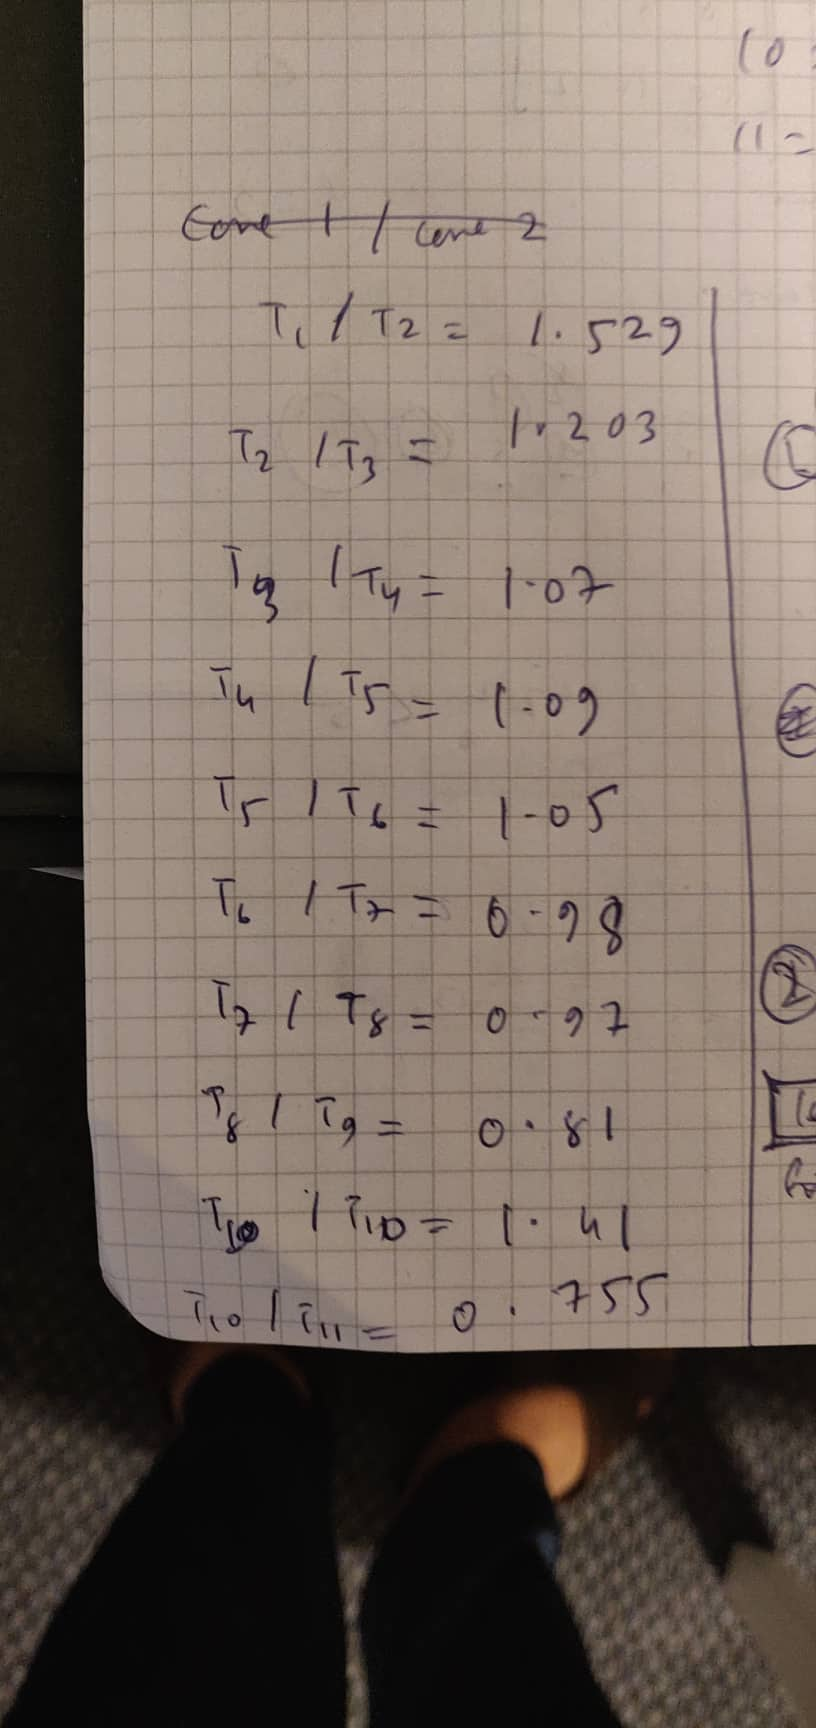 10 =
11 =
Core 1 / Core 2
T1 / T2 = 1.529
T2 / T3 = 1.203
T3 / T4 = 1.07
T4 / T5 = 1.09
T5 / T6 = 1.05
T6 / T7 = 0.98
T7 / T8 = 0.97
T8 / T9 = 0.81
T10 / T10 = 1.41
T10 / T11 = 0.755